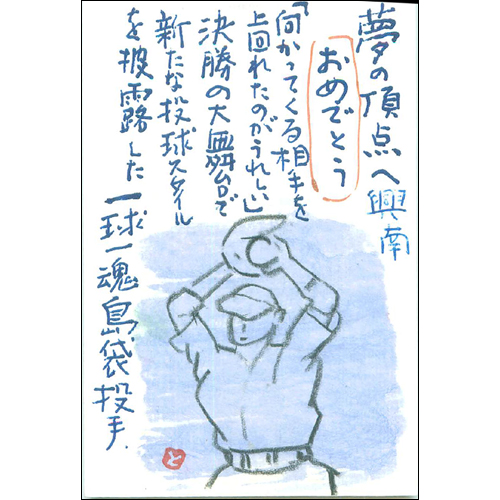 夢の頂点へ興南
おめでとう
「向かってくる相手を
上回れたのがうれしい」
決勝の大舞台で
新たな投球スタイル
を披露した一球一魂島袋投手.
と